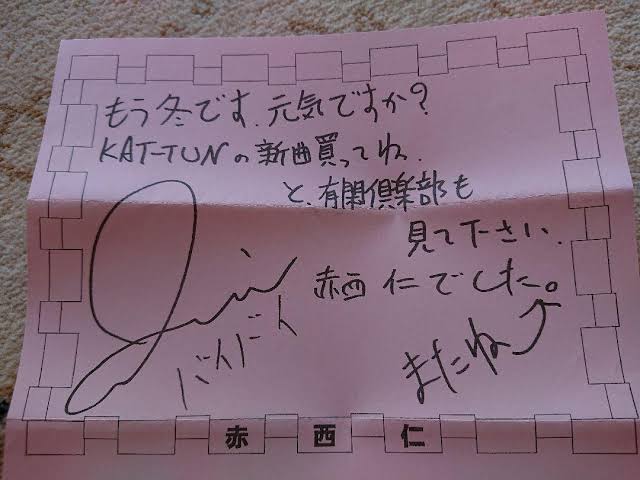 もう冬です.元気ですか?
KAT-TUNの新曲買ってね.
と、有閑倶楽部も
見て下さい.
赤西 仁でした。
Jin
またね
赤 西 仁